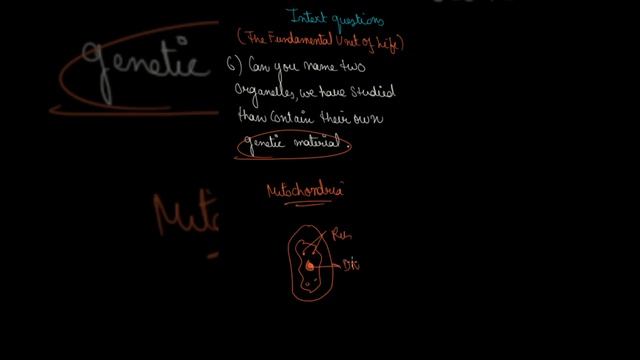 Intext questions
(The Fundamental Unit of Life)
6) Can you name two
organelles, we have studied
than contain their own
genetic material.
Mitochondria
genetic
Mito